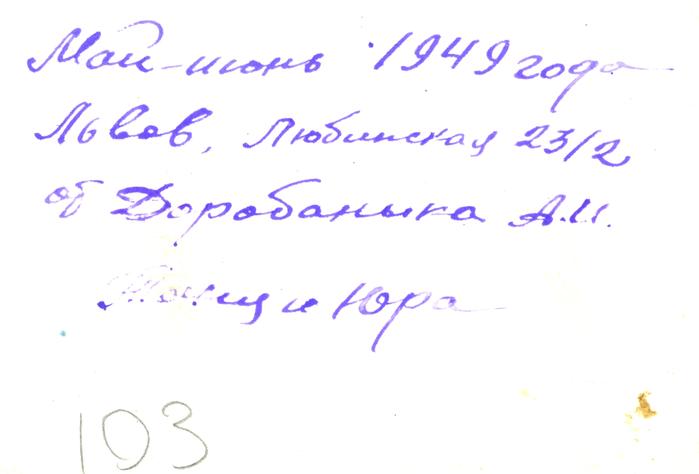 Май-июнь 1949 года
Львов, Любинская 23/2
от Доробаныка А.И.
и Юра
103